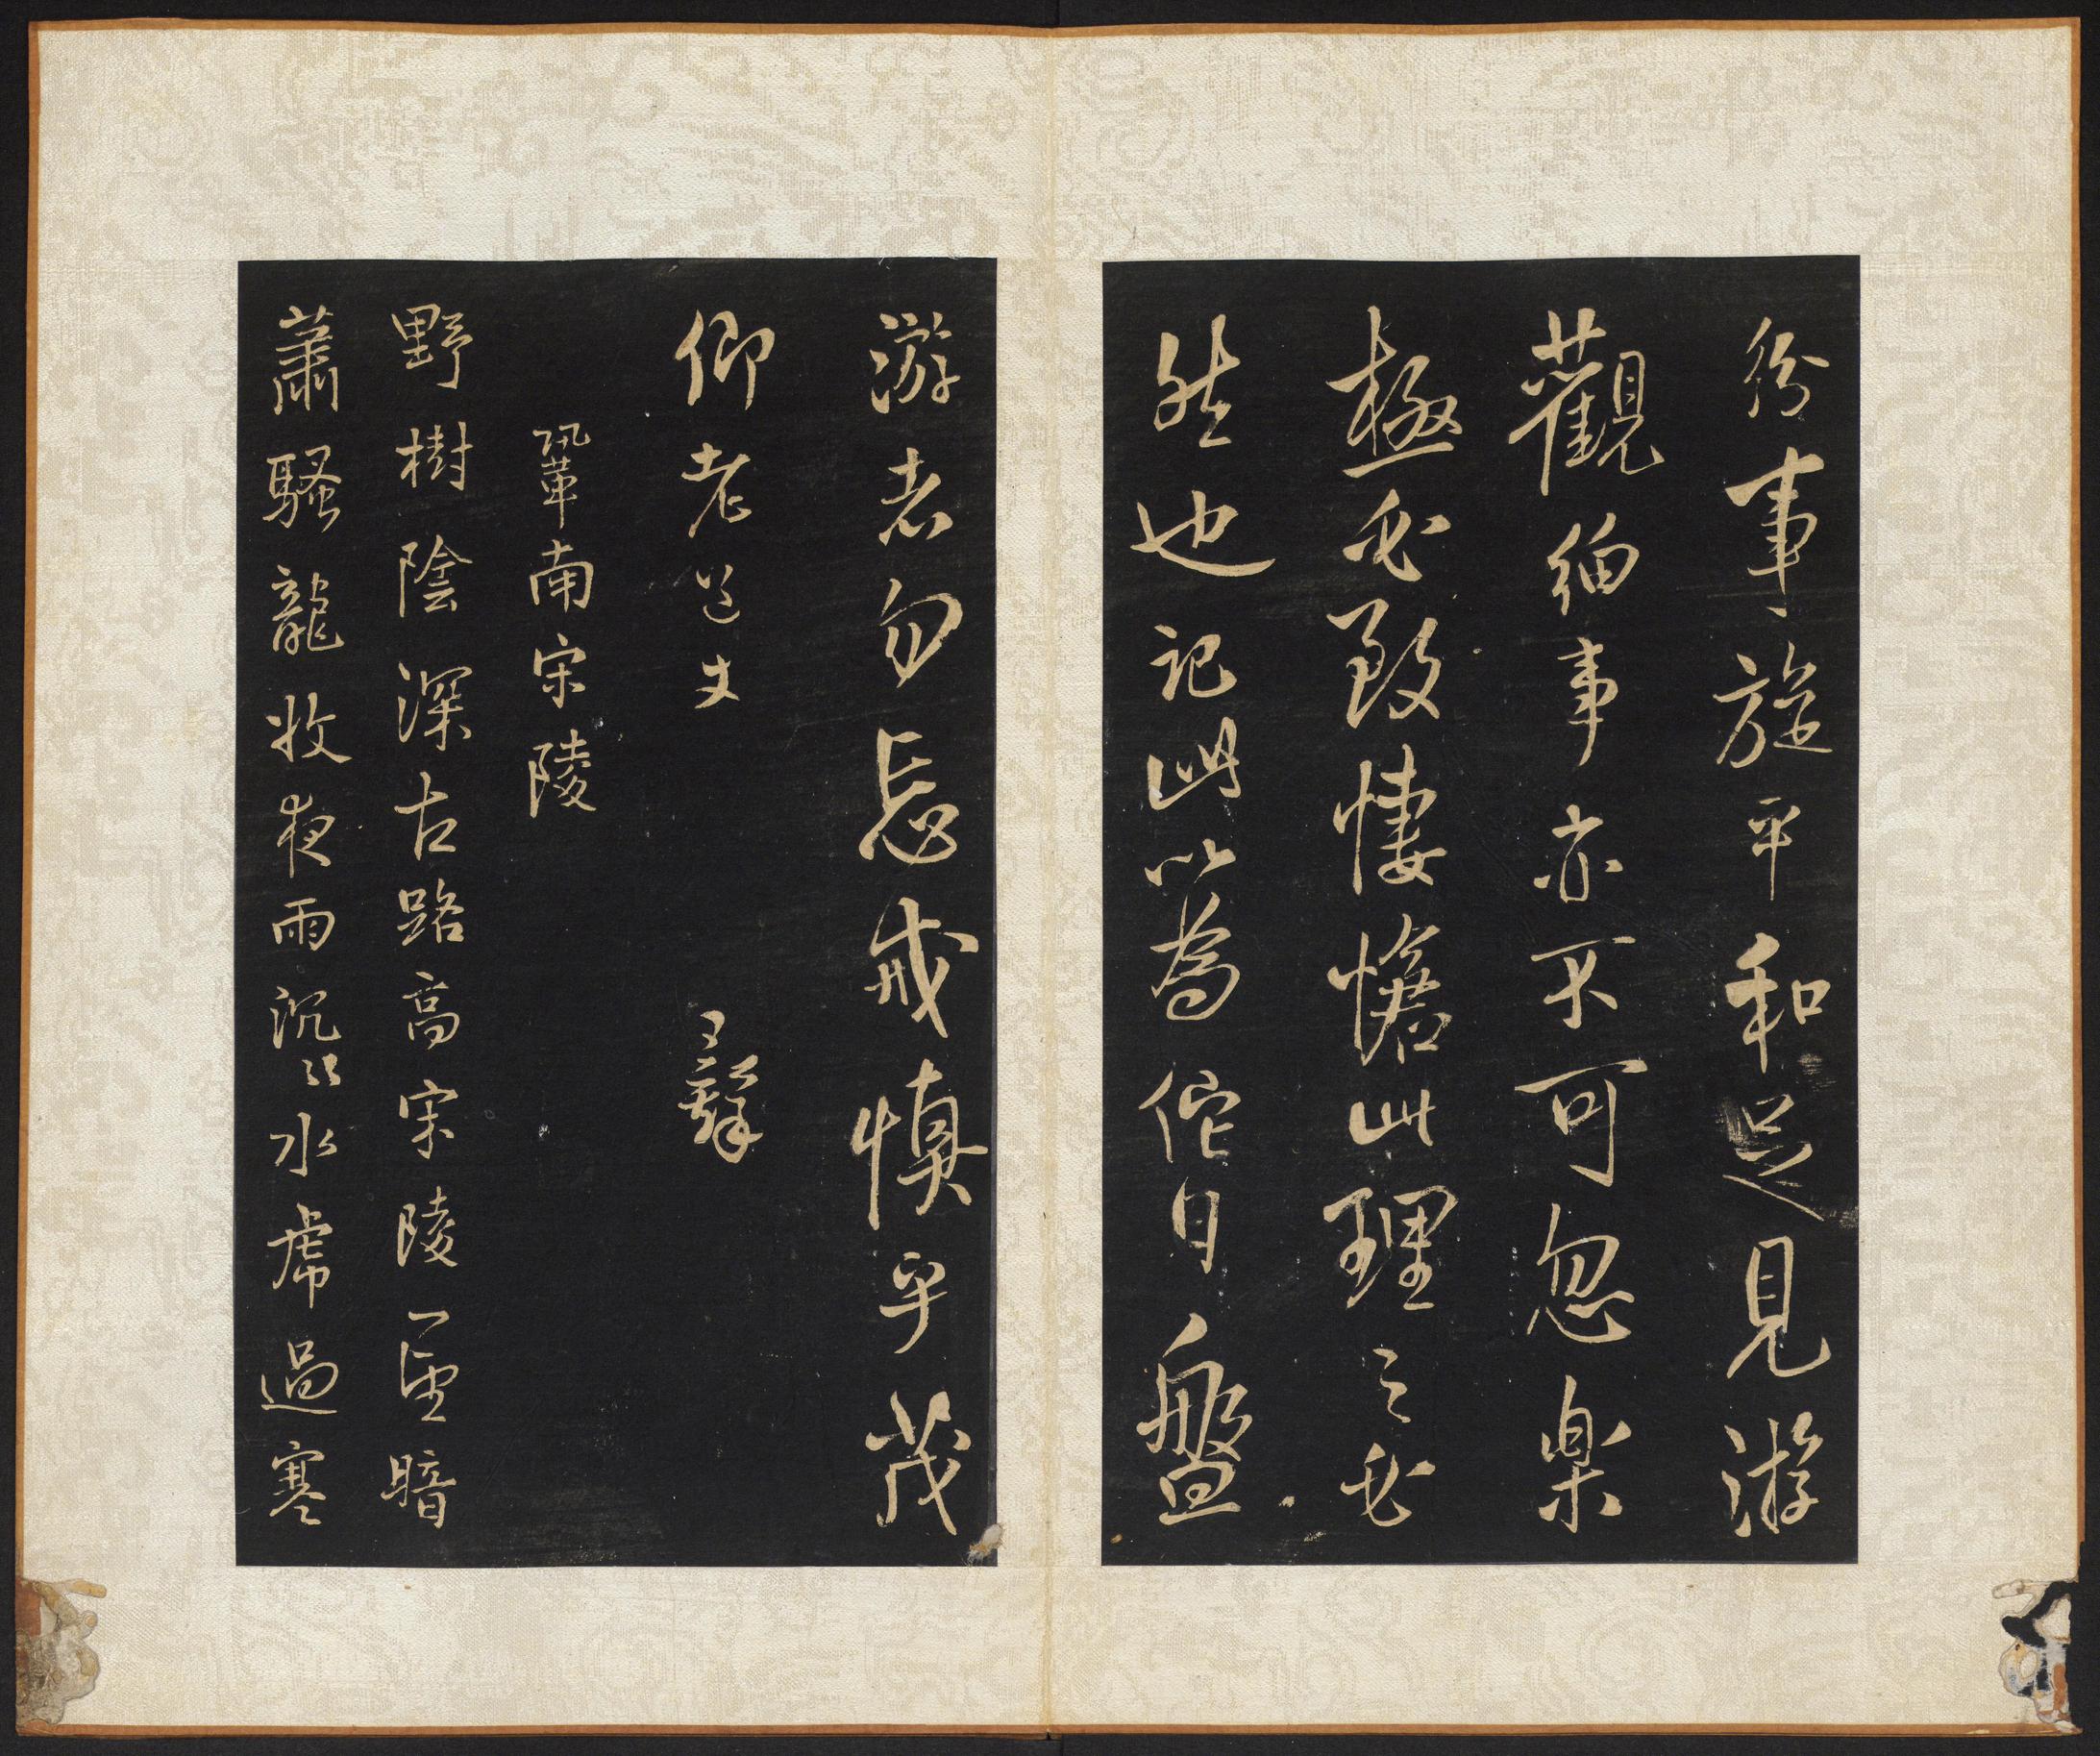 紛事旋平和足見游
觀細事亦不可忽樂
極必致悽愴此理之必
然也記此以為佗日盤
游者勿忘戒慎乎茂
仰老道丈
鞏南宋陵
野樹陰深古路高宋陵一望暗
蕭騷龍收夜雨沉沉水虎過寒